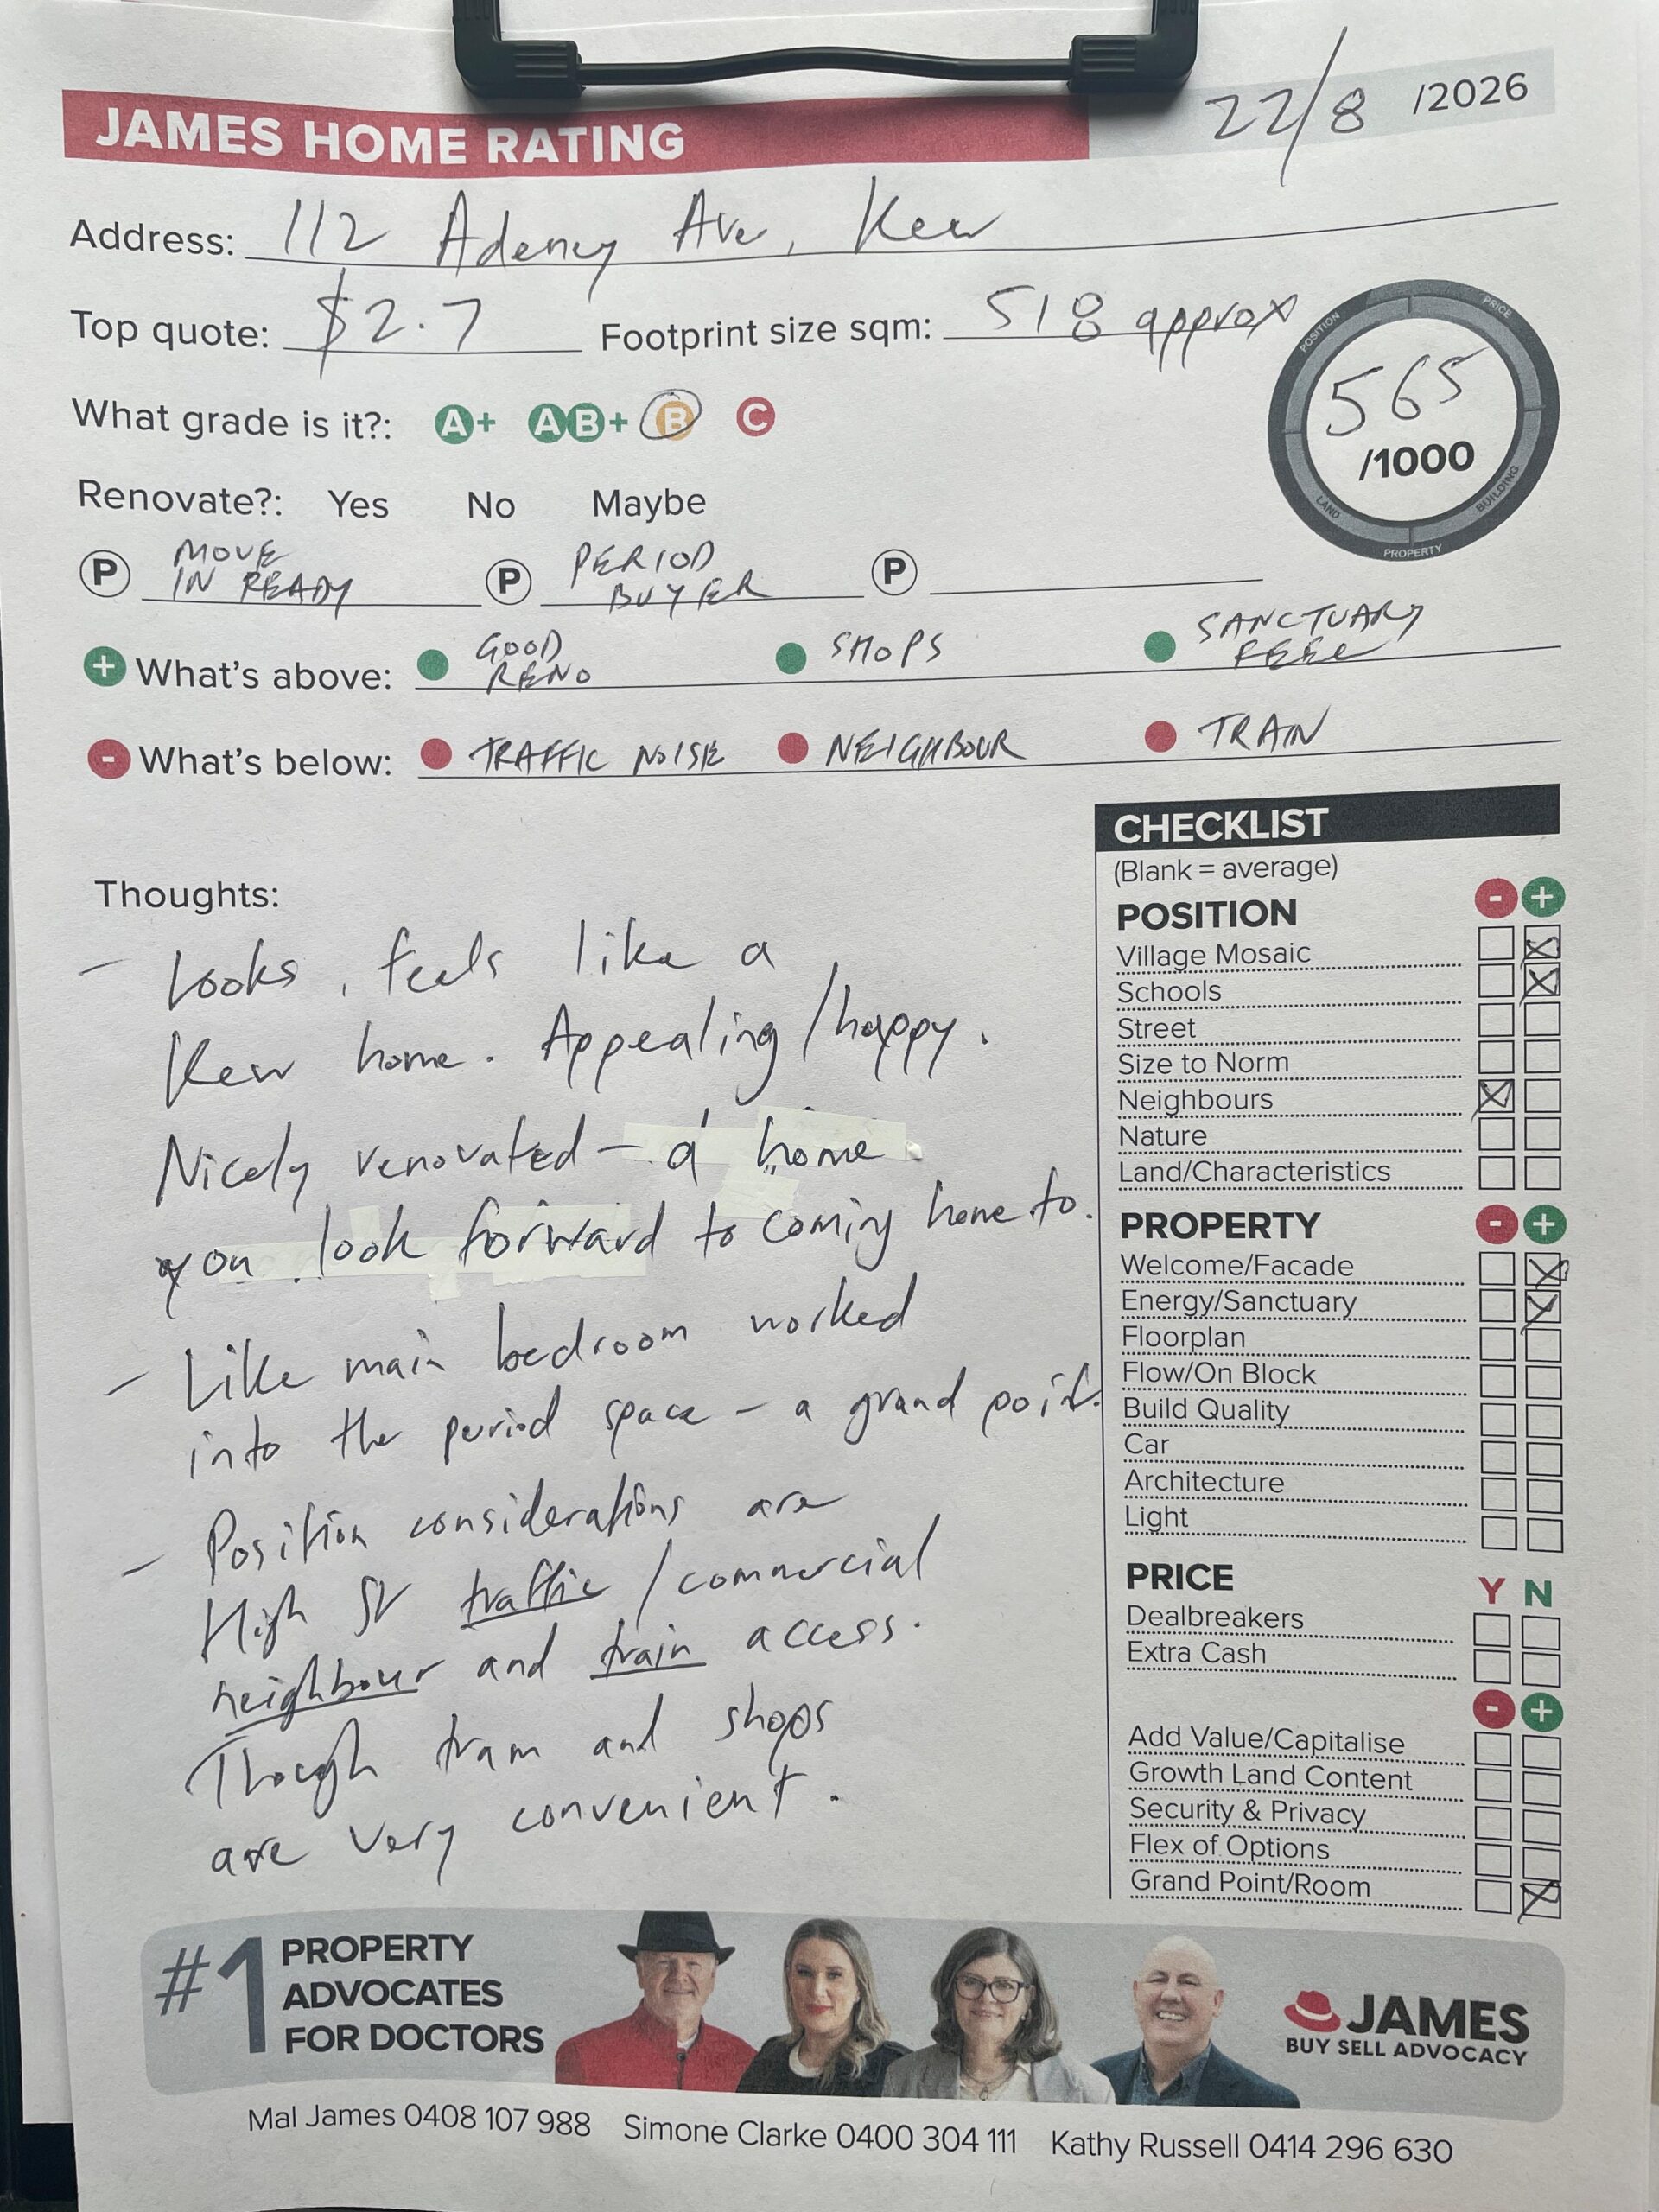 22/8 /2026
JAMES HOME RATING
Address: 112 Adeney Ave, Kew
Top quote: $2.7 Footprint size sqm: 518 approx
POSITION PRICE BUILDING PROPERTY LAND
565
/1000
What grade is it?: A+ AB+ B C
Renovate?: Yes No Maybe
P MOVE IN READY P PERIOD BUYER P
+ What's above: GOOD RENO SHOPS SANCTUARY FEEL
- What's below: TRAFFIC NOISE NEIGHBOUR TRAIN
Thoughts:
- Looks, feels like a
Kew home. Appealing/happy.
Nicely renovated - a home
you look forward to coming home to.
- Like main bedroom worked
into the period space - a grand point.
- Position considerations are
High St traffic/commercial
neighbour and train access.
Though tram and shops
are very convenient.
CHECKLIST
(Blank = average)
POSITION - +
Village Mosaic
Schools
Street
Size to Norm
Neighbours
Nature
Land/Characteristics
PROPERTY - +
Welcome/Facade
Energy/Sanctuary
Floorplan
Flow/On Block
Build Quality
Car
Architecture
Light
PRICE Y N
Dealbreakers
Extra Cash
- +
Add Value/Capitalise
Growth Land Content
Security & Privacy
Flex of Options
Grand Point/Room
#1 PROPERTY
ADVOCATES
FOR DOCTORS
JAMES
BUY SELL ADVOCACY
Mal James 0408 107 988 Simone Clarke 0400 304 111 Kathy Russell 0414 296 630